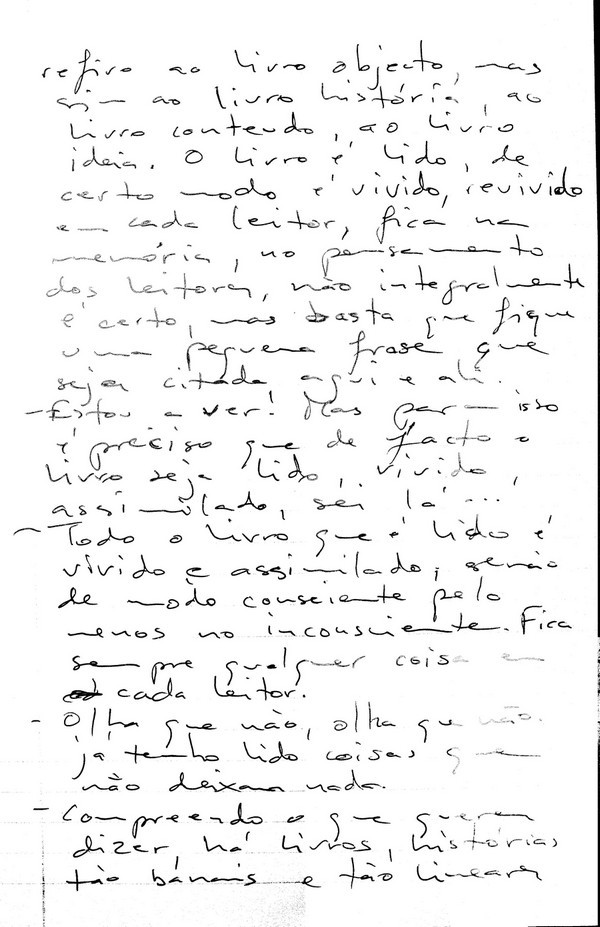 refiro ao livro objecto, mas
sim ao livro história, ao
livro conteudo, ao livro
ideia. O livro é lido, de
certo modo é vivido, revivido
em cada leitor, fica na
memória, no pensamento
dos leitores, não integralmente
é certo, mas basta que fique
uma pequena frase que
seja citada aqui e ali.
- Estou a ver! Mas para isso
é preciso que de facto o
livro seja lido, vivido,
assimilado, sei lá...
- Todo o livro que é lido é
vivido e assimilado, senão
de modo consciente pelo
menos no inconsciente. Fica
sempre qualquer coisa em
cada leitor.
- Olha que não, olha que não.
já tenho lido coisas que
não deixam nada.
- Compreendo o que queres
dizer, há livros, histórias
tão banais e tão lineares